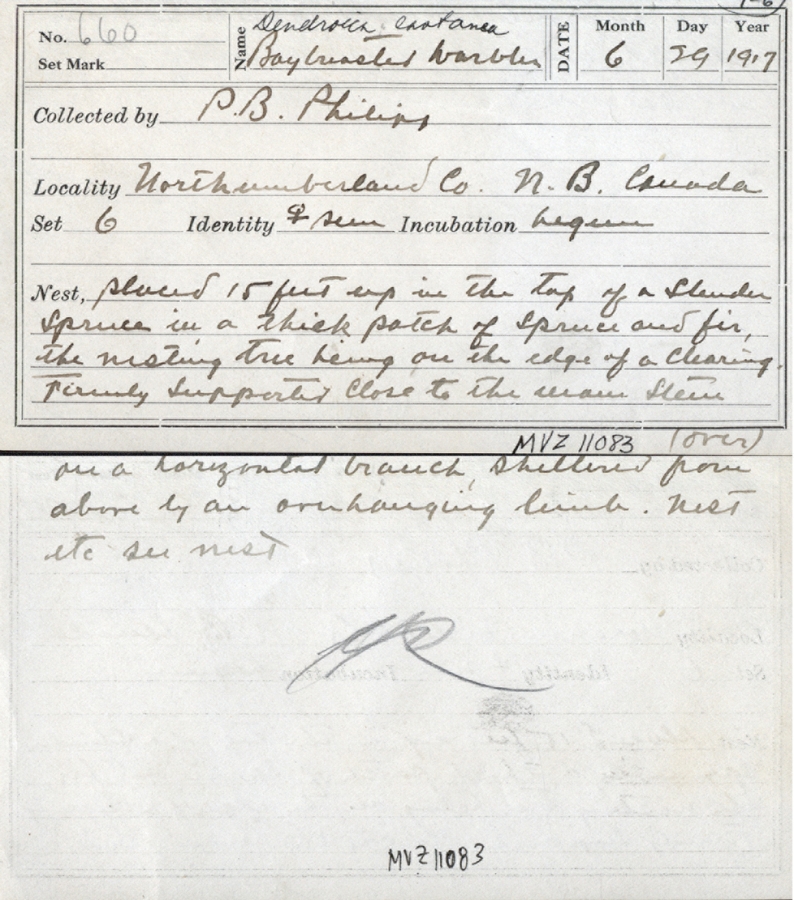 1-6
No. 660
Set Mark
Name Dendroica castanea
Baybreasted Warbler
DATE Month Day Year
6 29 1917
Collected by P.B. Philipp
Locality Northumberland Co. N.B. Canada
Set 6 Identity ♀ seen Incubation begun
Nest, placed 15 feet up in the top of a slender
spruce in a thick patch of spruce and fir,
the nesting tree being on the edge of a clearing.
Firmly supported close to the main stem
MVZ 11083 (over)
on a horizontal branch, sheltered from
above by an overhanging limb. Nest
etc see nest
MVZ 11083